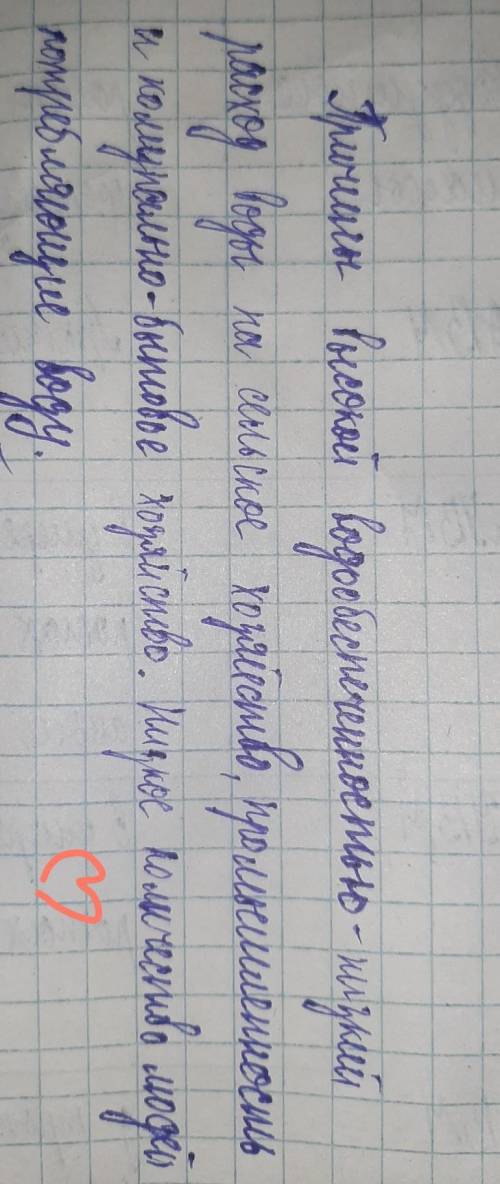 Причины высокой водообеспеченностью - низкий
расход воды на сельское хозяйство, промышленность
и комунально-бытовое хозяйство. Низкое количество людей
потребляющие воду.